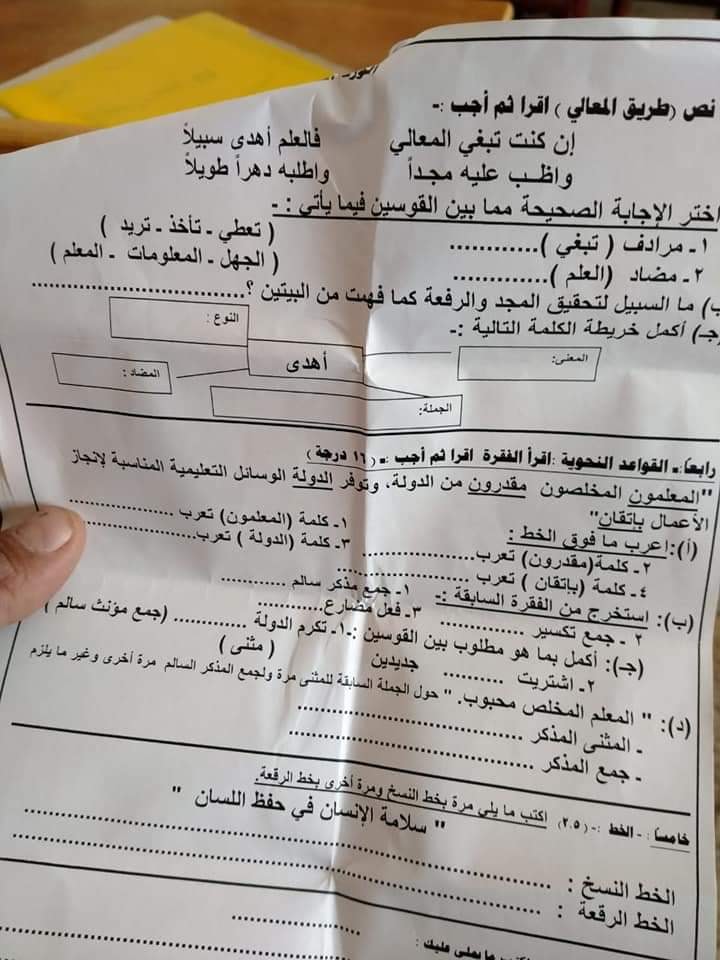 نص (طريق المعالي) اقرا ثم أجب :-
إن كنت تبغي المعالي فالعلم أهدى سبيلاً
واظب عليه مجداً واطلبه دهراً طويلاً
اختر الإجابة الصحيحة مما بين القوسين فيما يأتي :-
١- مرادف ( تبغي )............ ( تعطي - تأخذ - تريد )
٢- مضاد (العلم )............ ( الجهل - المعلومات - المعلم )
ب) ما السبيل لتحقيق المجد والرفعة كما فهمت من البيتين ؟............................
جـ) أكمل خريطة الكلمة التالية :-
النوع :
المعنى:
أهدى
المضاد :
الجملة:
رابعاً:- القواعد النحوية :اقرأ الفقرة اقرا ثم أجب :-( ١٦ درجة )
"المعلمون المخلصون مقدرون من الدولة، وتوفر الدولة الوسائل التعليمية المناسبة لإنجاز
الأعمال بإتقان"
(أ):إعرب ما فوق الخط :
١- كلمة (المعلمون) تعرب ................
٢- كلمة(مقدرون) تعرب................
٣- كلمة (الدولة ) تعرب................
٤- كلمة (بإتقان ) تعرب ................
(ب): استخرج من الفقرة السابقة :-
١- جمع مذكر سالم ...........
٢- جمع تكسير ............. ٣- فعل مضارع............
(جـ): أكمل بما هو مطلوب بين القوسين :-١- تكرم الدولة ............ (جمع مؤنث سالم )
٢- اشتريت .......... جديدين ( مثنى )
(د): " المعلم المخلص محبوب. " حول الجملة السابقة للمثنى مرة ولجمع المذكر السالم مرة أخرى وغير ما يلزم
- المثنى المذكر ............................
- جمع المذكر ............................
خامساً : - الخط :- (٢.٥) اكتب ما يلي مرة بخط النسخ ومرة أخرى بخط الرقعة.
" سلامة الإنسان في حفظ اللسان "
الخط النسخ : ............................
الخط الرقعة : ............................
ما يملى عليك :